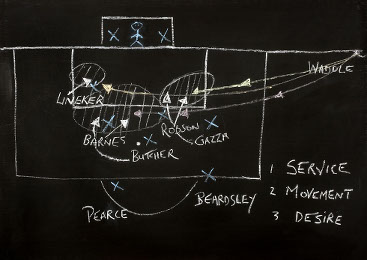 WADDLE
LINEKER
BARNES
ROBSON
GAZZA
BUTCHER
PEARCE
BEARDSLEY
1 SERVICE
2 MOVEMENT
3 DESIRE